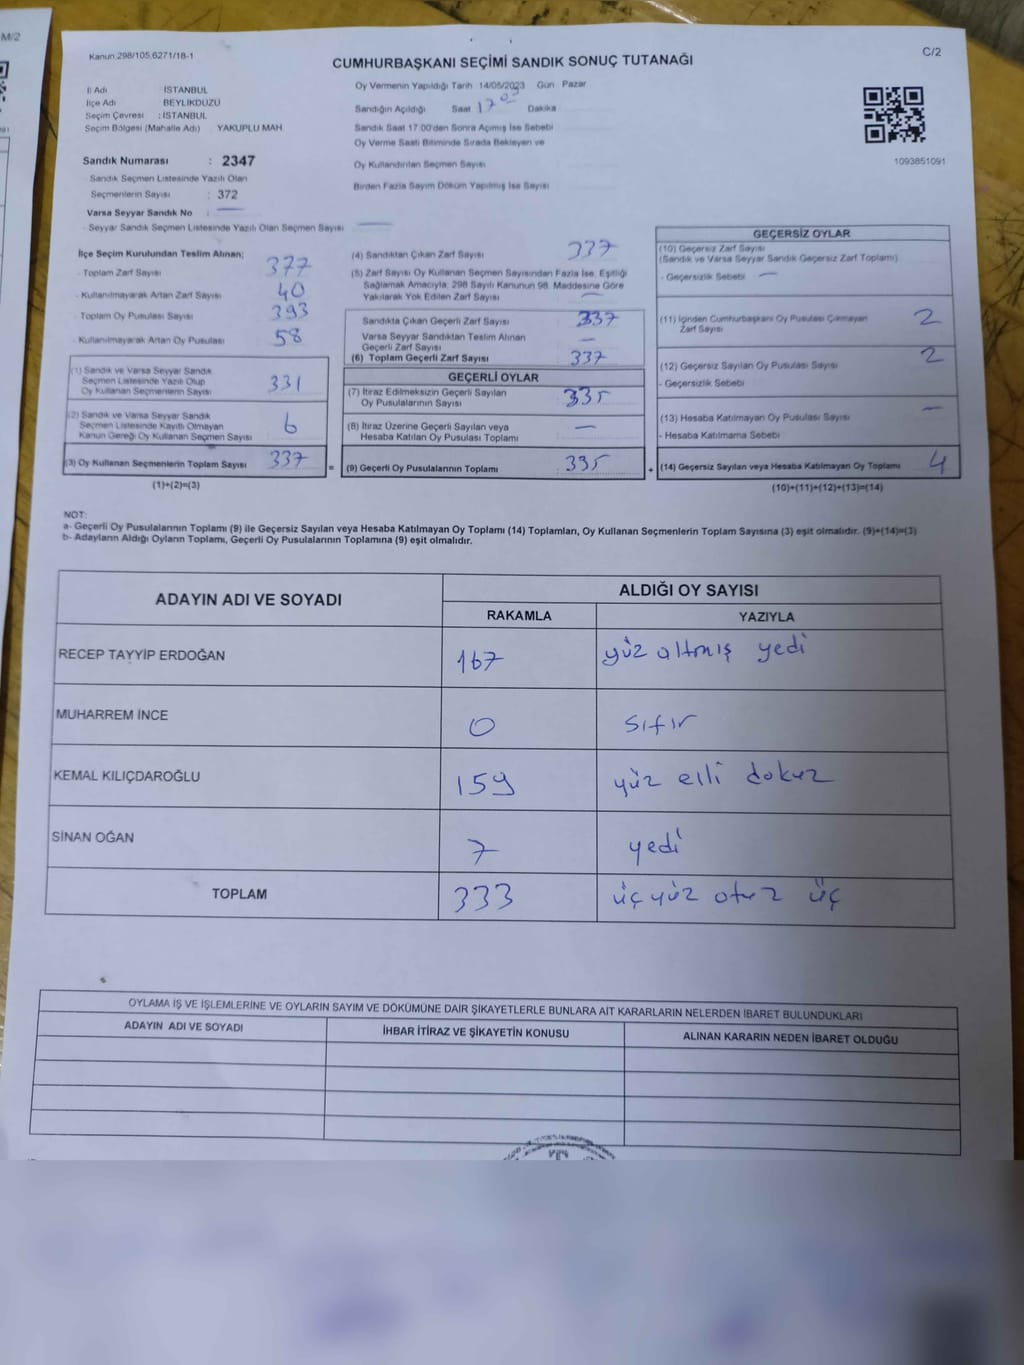 M/2
Kanun.298/105,6271/18-1
CUMHURBAŞKANI SEÇİMİ SANDIK SONUÇ TUTANAĞI
C/2
İl Adı İSTANBUL
İlçe Adı BEYLİKDÜZÜ
Seçim Çevresi : İSTANBUL
Seçim Bölgesi (Mahalle Adı) YAKUPLU MAH
Oy Vermenin Yapıldığı Tarih 14/05/2023 Gün Pazar
Sandığın Açıldığı Saat 17 Dakika
Sandık Saat 17:00'den Sonra Açımış İse Sebebi
Oy Verme Saati Bitiminde Sırada Bekleyen ve
Oy Kullandırılan Seçmen Sayısı
Birden Fazla Sayım Döküm Yapılmış İse Sayısı
1093851091
Sandık Numarası : 2347
Sandık Seçmen Listesinde Yazılı Olan
Seçmenlerin Sayısı : 372
Varsa Seyyar Sandık No :
- Seyyar Sandık Seçmen Listesinde Yazılı Olan Seçmen Sayısı
İlçe Seçim Kurulundan Teslim Alınan;
- Toplam Zarf Sayısı 377
- Kullanılmayarak Artan Zarf Sayısı 40
- Toplam Oy Pusulası Sayısı 393
- Kullanılmayarak Artan Oy Pusulası 58
(1) Sandık ve Varsa Seyyar Sandık
Seçmen Listesinde Yazılı Olup
Oy Kullanan Seçmenlerin Sayısı 331
(2) Sandık ve Varsa Seyyar Sandık
Seçmen Listesinde Kayıtlı Olmayan
Kanun Gereği Oy Kullanan Seçmen Sayısı 6
(3) Oy Kullanan Seçmenlerin Toplam Sayısı 337
(1)+(2)=(3)
(4) Sandıktan Çıkan Zarf Sayısı 337
(5) Zarf Sayısı Oy Kullanan Seçmen Sayısından Fazla İse, Eşitliği
Sağlamak Amacıyla, 298 Sayılı Kanunun 98. Maddesine Göre
Yakılarak Yok Edilen Zarf Sayısı —
Sandıkta Çıkan Geçerli Zarf Sayısı 337
Varsa Seyyar Sandıktan Teslim Alınan
Geçerli Zarf Sayısı —
(6) Toplam Geçerli Zarf Sayısı 337
GEÇERLİ OYLAR
(7) İtiraz Edilmeksizin Geçerli Sayılan
Oy Pusulalarının Sayısı 335
(8) İtiraz Üzerine Geçerli Sayılan veya
Hesaba Katılan Oy Pusulası Toplamı —
= (9) Geçerli Oy Pusulalarının Toplamı 335
GEÇERSİZ OYLAR
(10) Geçersiz Zarf Sayısı
(Sandık ve Varsa Seyyar Sandık Geçersiz Zarf Toplamı)
- Geçersizlik Sebebi —
(11) İçinden Cumhurbaşkanı Oy Pusulası Çıkmayan
Zarf Sayısı 2
(12) Geçersiz Sayılan Oy Pusulası Sayısı 2
- Geçersizlik Sebebi
(13) Hesaba Katılmayan Oy Pusulası Sayısı —
- Hesaba Katılmama Sebebi
+ (14) Geçersiz Sayılan veya Hesaba Katılmayan Oy Toplamı 4
(10)+(11)+(12)+(13)=(14)
NOT:
a- Geçerli Oy Pusulalarının Toplamı (9) ile Geçersiz Sayılan veya Hesaba Katılmayan Oy Toplamı (14) Toplamları, Oy Kullanan Seçmenlerin Toplam Sayısına (3) eşit olmalıdır. (9)+(14)=(3)
b- Adayların Aldığı Oyların Toplamı, Geçerli Oy Pusulalarının Toplamına (9) eşit olmalıdır.
ADAYIN ADI VE SOYADI
ALDIĞI OY SAYISI
RAKAMLA YAZIYLA
RECEP TAYYİP ERDOĞAN 167 yüz altmış yedi
MUHARREM İNCE 0 sıfır
KEMAL KILIÇDAROĞLU 159 yüz elli dokuz
SİNAN OĞAN 7 yedi
TOPLAM 333 üç yüz otuz üç
OYLAMA İŞ VE İŞLEMLERİNE VE OYLARIN SAYIM VE DÖKÜMÜNE DAİR ŞİKAYETLERLE BUNLARA AİT KARARLARIN NELERDEN İBARET BULUNDUKLARI
ADAYIN ADI VE SOYADI İHBAR İTİRAZ VE ŞİKAYETİN KONUSU ALINAN KARARIN NEDEN İBARET OLDUĞU